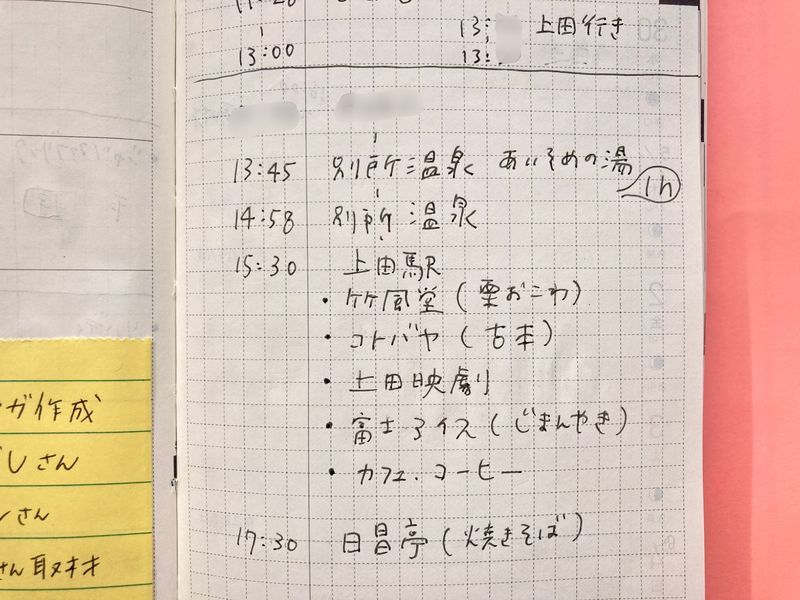 13: 上田行き
13:00 13:
13:45 別所温泉 あいそめの湯
1h
14:58 別所温泉
15:30 上田駅
・竹風堂(栗おこわ)
・コトバヤ(古本)
・上田映劇
・富士アイス(じまんやき)
・カフェ.コーヒー
17:30 日昌亭(焼きそば)
ガ作成
さん
さん
さん取材